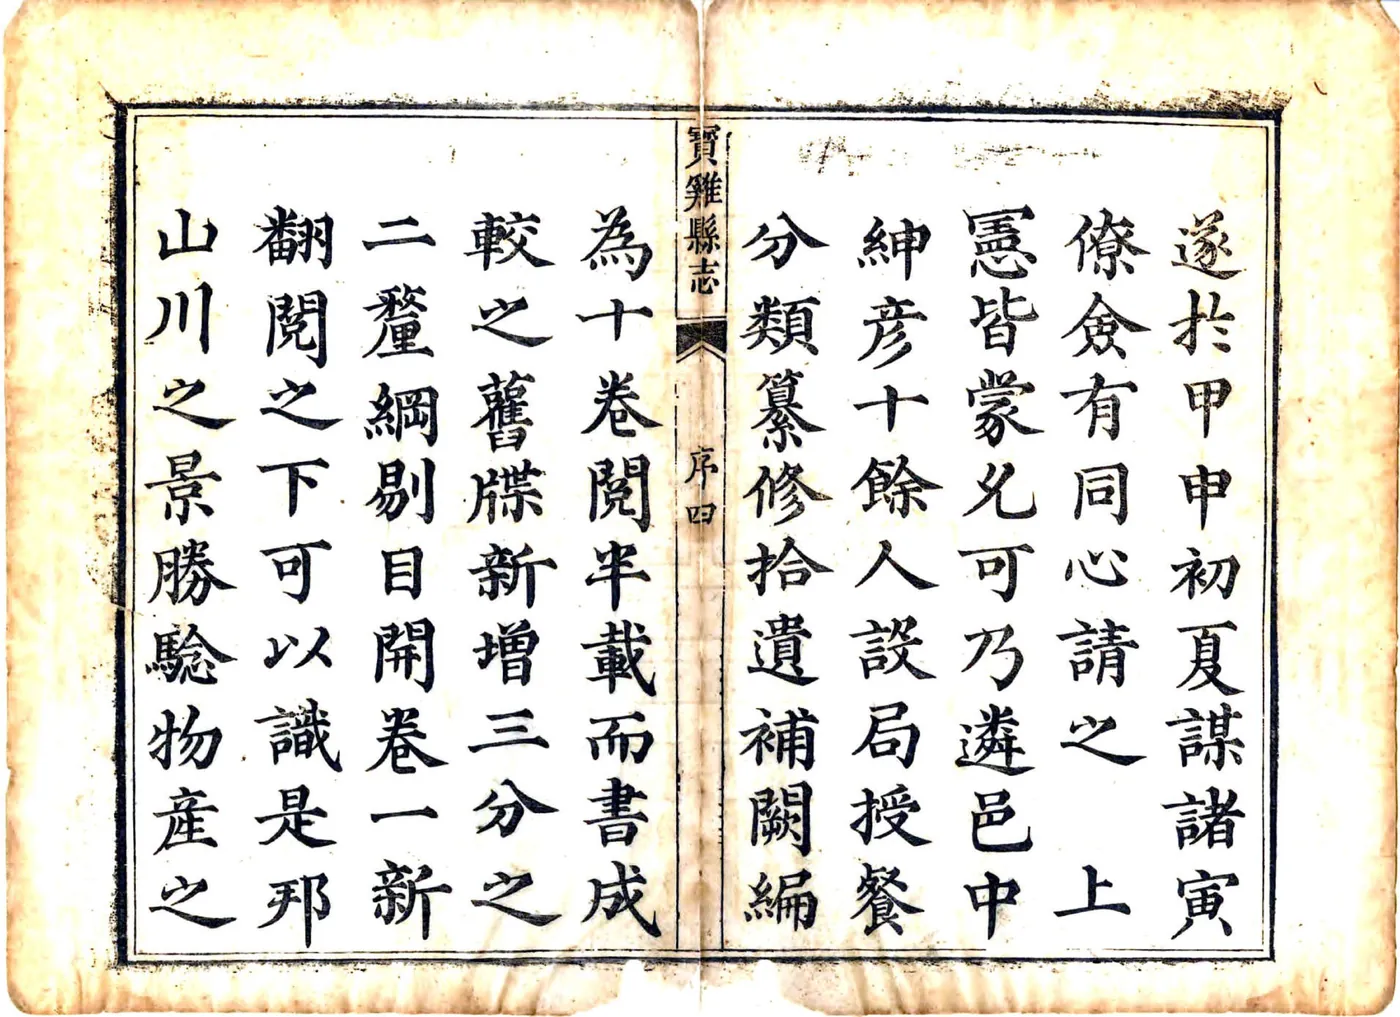 遂於甲申初夏謀諸寅
僚僉有同心請之　上
憲皆蒙允可乃遴邑中
紳彥十餘人設局授餐
分類纂修拾遺補闕編
寳雞縣志
序四
為十卷閱半載而書成
較之舊牒新增三分之
二釐綱剔目開卷一新
翻閱之下可以識是邦
山川之景勝驗物產之